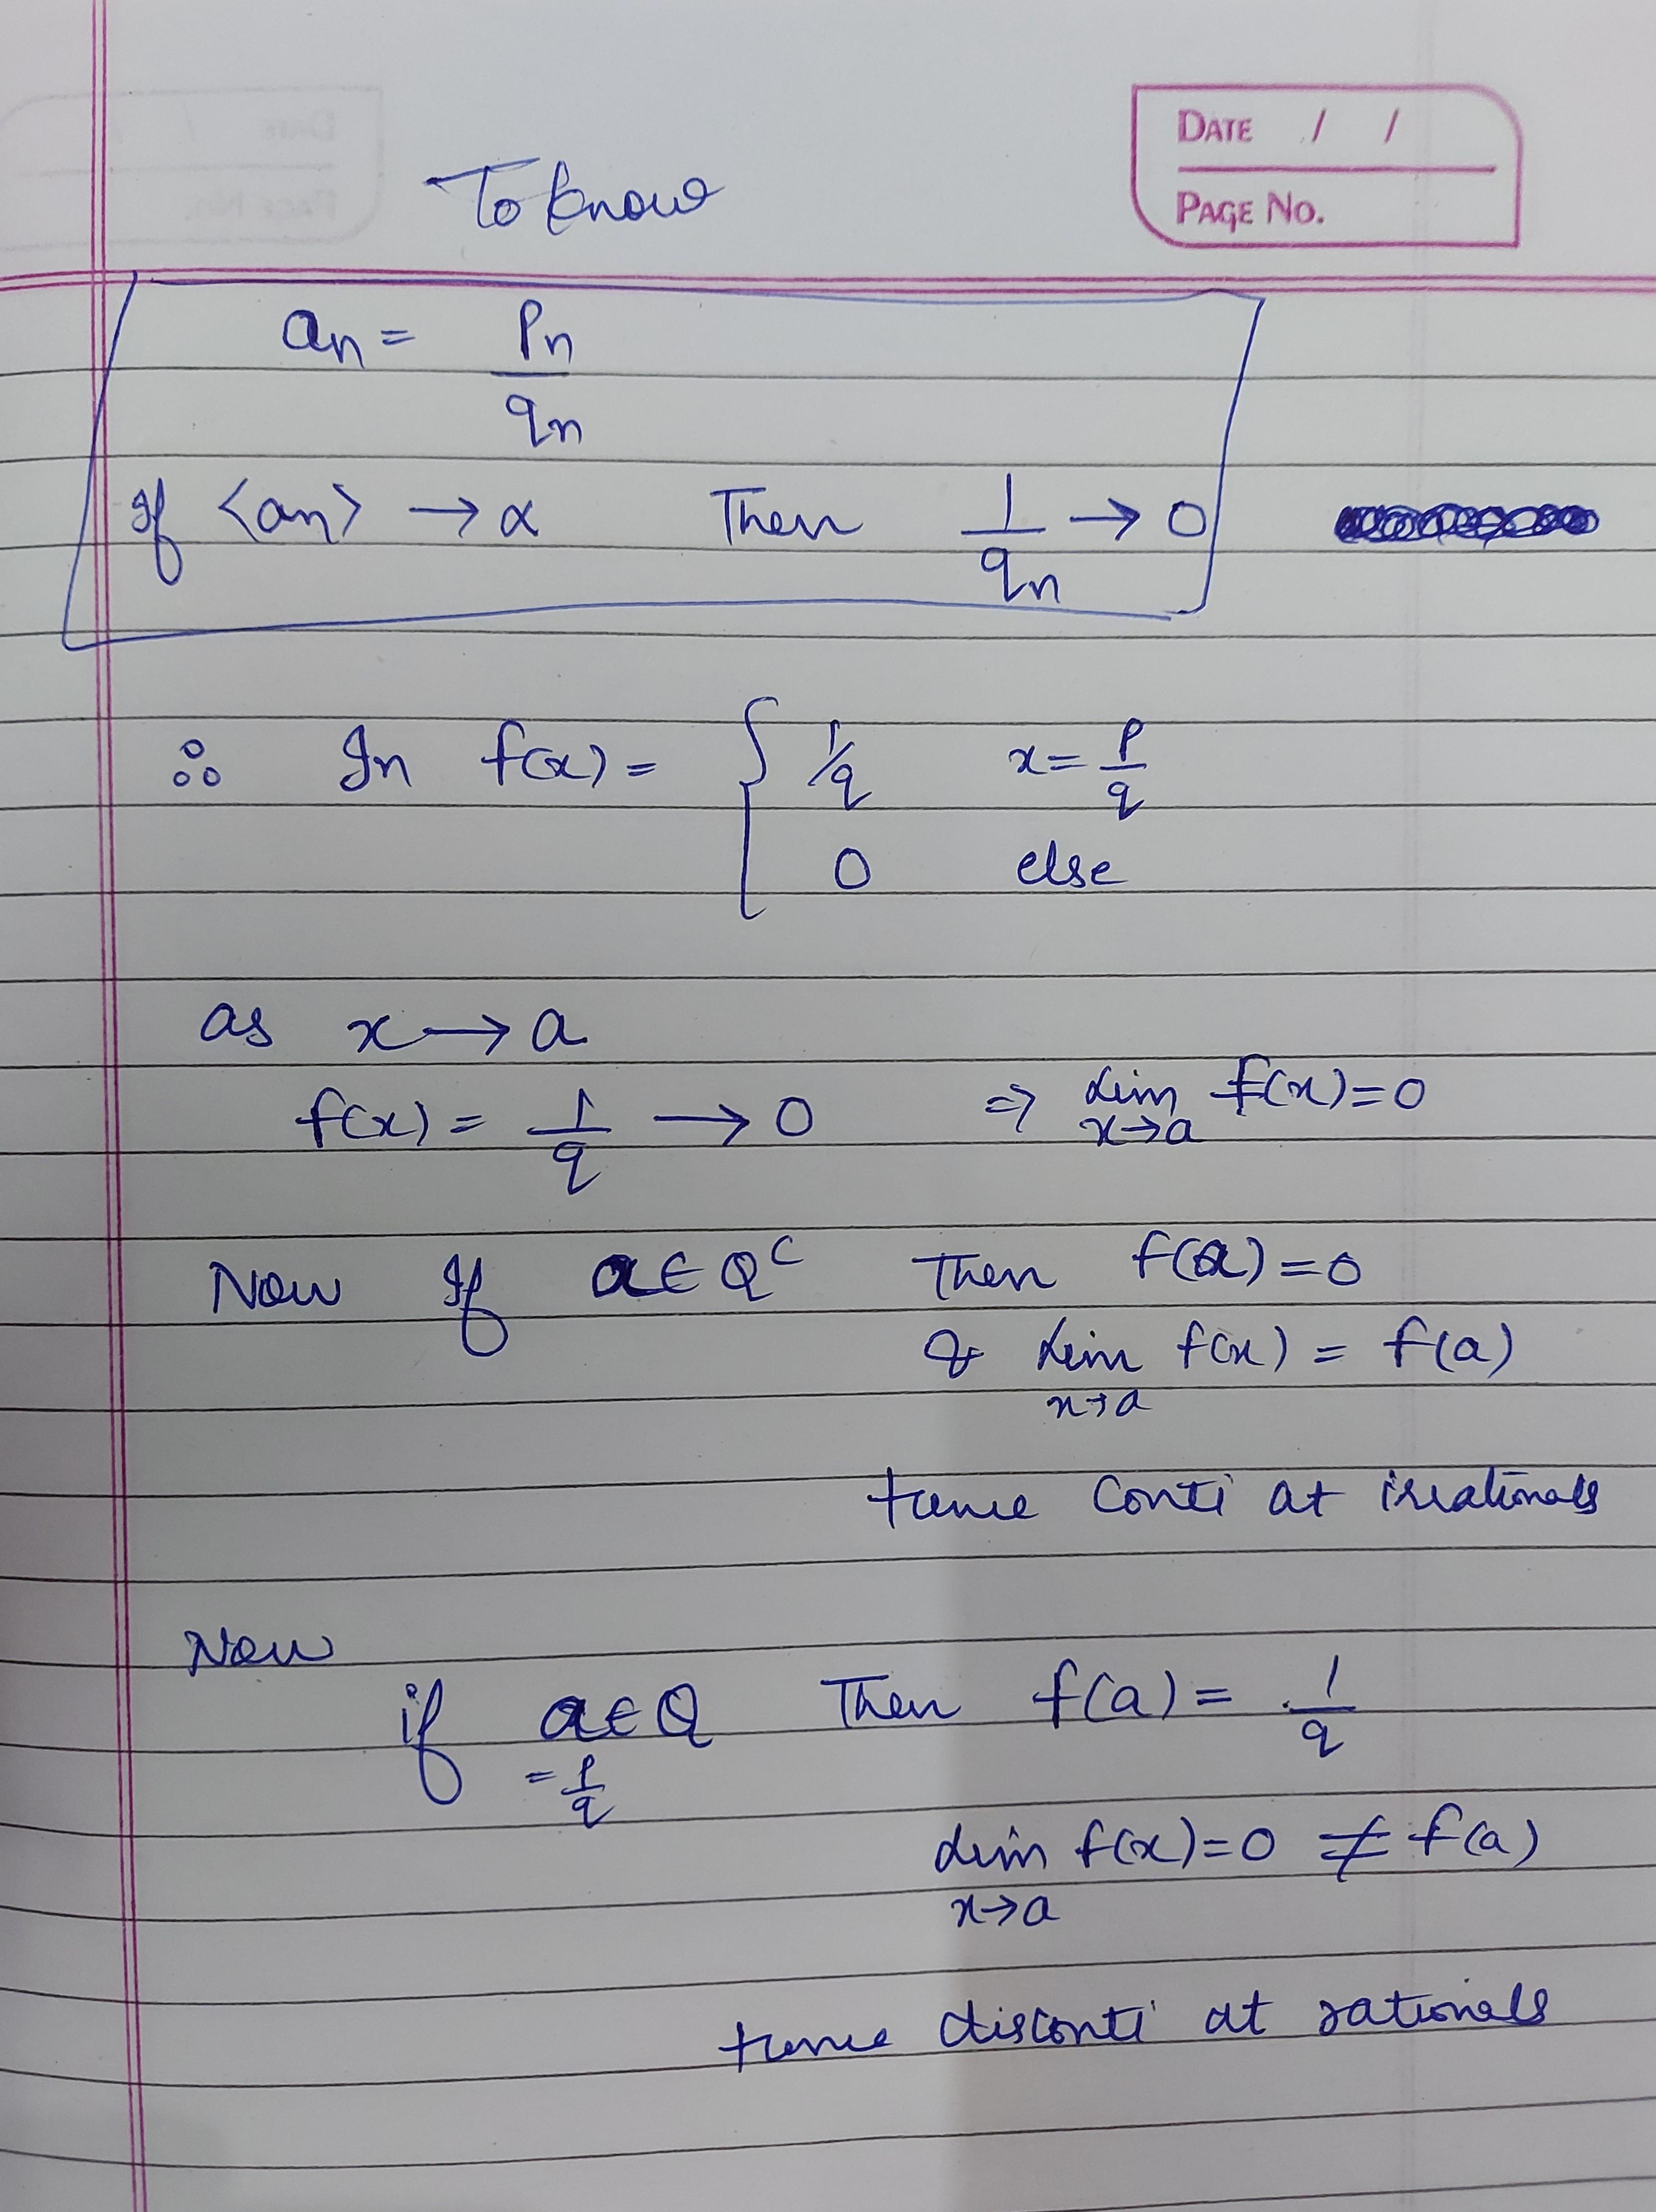 DATE / /
PAGE NO.
To know
an = Pn/qn
If <an> → α Then 1/qn → 0
∴ In f(x) = { 1/q x = p/q
0 else
as x → a
f(x) = 1/q → 0 ⇒ Lim x→a f(x) = 0
Now If a ∈ Q^c Then f(a) = 0
& Lim x→a f(x) = f(a)
Hence Conti at irrationals
Now
if a ∈ Q Then f(a) = 1/q
= p/q
Lim x→a f(x) = 0 ≠ f(a)
Hence disconti at rationals